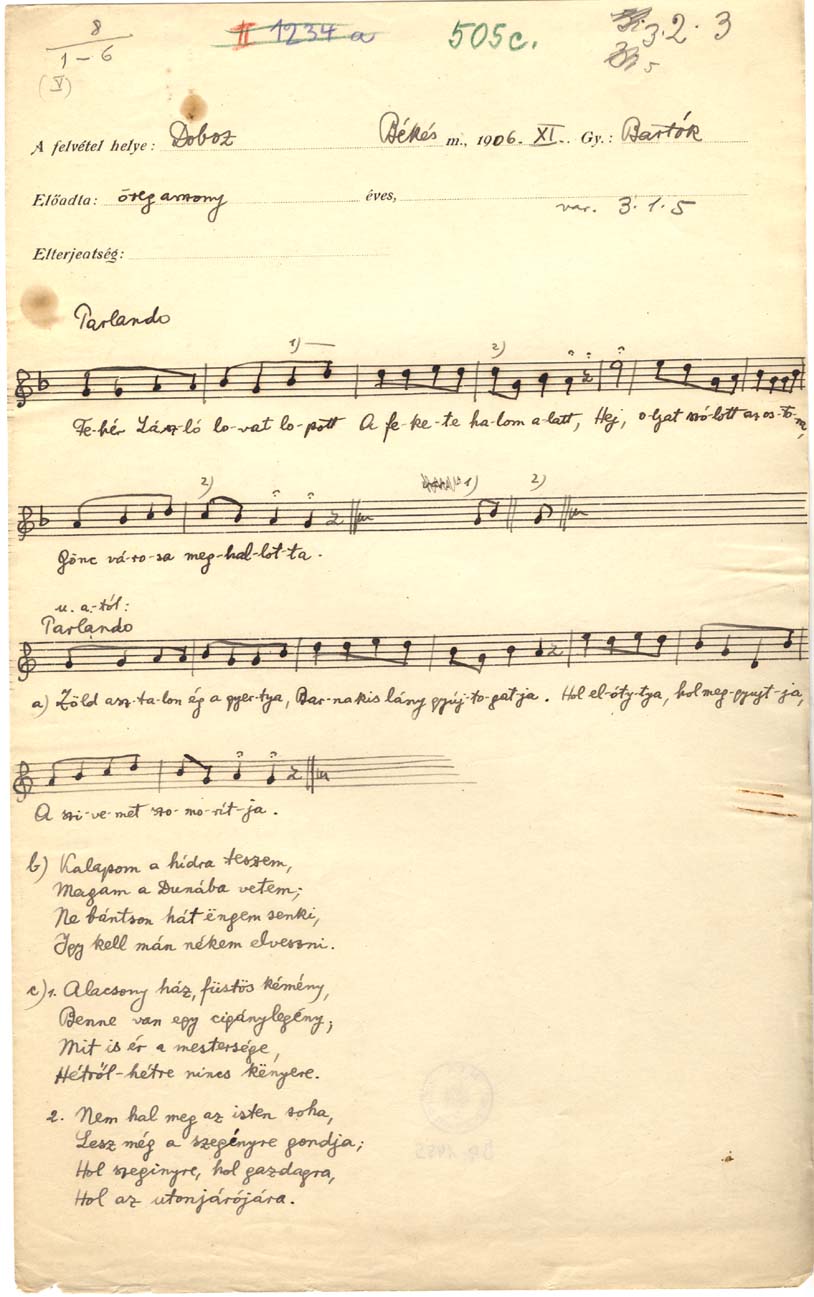 8 II 1234 a 505c. 3.2.3
1-6 5
(V)
A felvétel helye: Doboz Békés m., 1906. XI. Gy.: Bartók
Előadta: öregasszony éves,
var. 3.1.5
Elterjedtség:
Parlando
1) 2)
Fe-hér Lász-ló lo-vat lo-pott A fe-ke-te ha-lom a-latt, Hej, o-lyat szó-lott az os-to-ra,
2) 1) 2)
Gönc vá-ro-sa meg-hal-lot-ta.
u. a.-tól:
Parlando
a) Zöld asz-ta-lon ég a gyer-tya, Bar-na kis lány gyúj-to-gat-ja. Hol el-óty-tya, hol meg-gyujt-ja,
A szi-ve-met szo-mo-rít-ja.
b) Kalapom a hídra teszem,
Magam a Dunába vetem;
Ne bántson hát ëngem senki,
Így kell mán nékem elveszni.
c) 1. Alacsony ház, füstös kémény,
Benne van egy cigánylegény;
Mit is ér a mestersége,
Hétről-hétre nincs kënyere.
2. Nem hal meg az isten soha,
Lesz még a szegényre gondja;
Hol szeginyre, hol gazdagra,
Hol az utonjárójára.